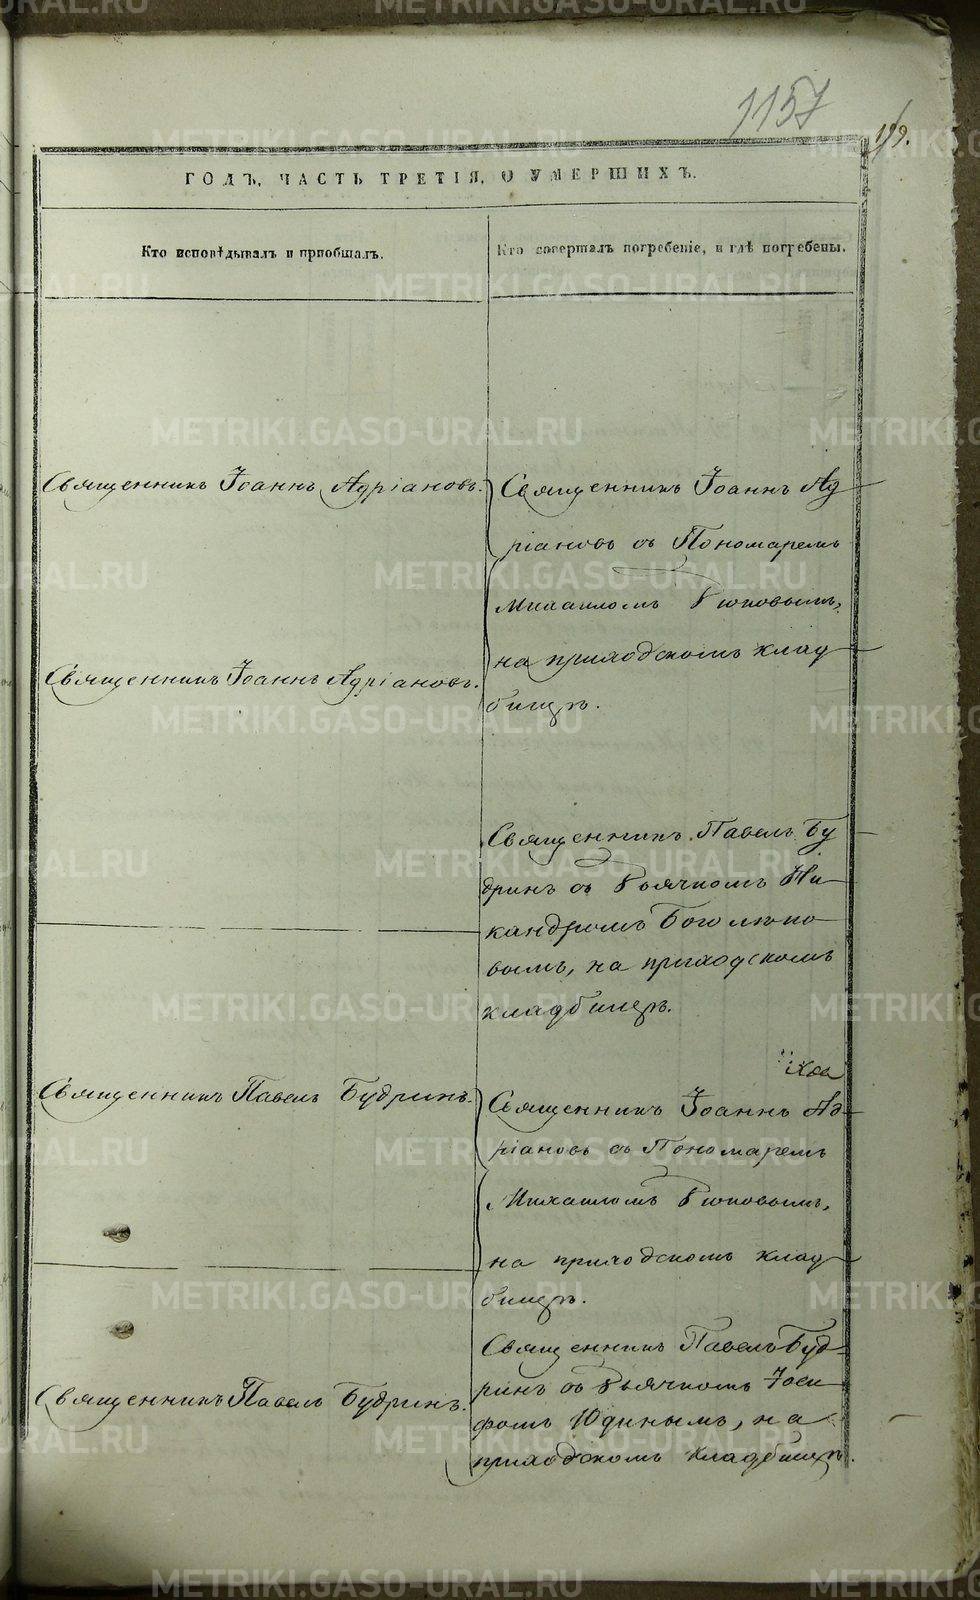 1157
119.
ГОДЪ, ЧАСТЬ ТРЕТІЯ, О УМЕРШИХЪ.
Кто исповѣдывалъ и пріобщалъ.
Кто совершалъ погребеніе, и гдѣ погребены.
Священникъ Іоаннъ Адріановъ.
Священникъ Іоаннъ Ад
ріановъ съ Пономаремъ
Михаиломъ
на приходскомъ клад
бищѣ.
Священникъ Іоаннъ Адріановъ.
Священникъ Павелъ Бу
дринъ съ Дьячкомъ Ни
кандромъ Боголюпо
вымъ, на приходскомъ
кладбищѣ.
Священникъ Павелъ Будринъ.
Священникъ Іоаннъ Ад
ріановъ съ Пономаремъ
Михаиломъ
на приходскомъ клад
бищѣ.
Священникъ Павелъ Будринъ.
Священникъ Павелъ Буд
ринъ съ Дьячкомъ Іоси
фомъ Юдинымъ, на
приходскомъ кладбищѣ.
METRIKI.GASO-URAL.RU